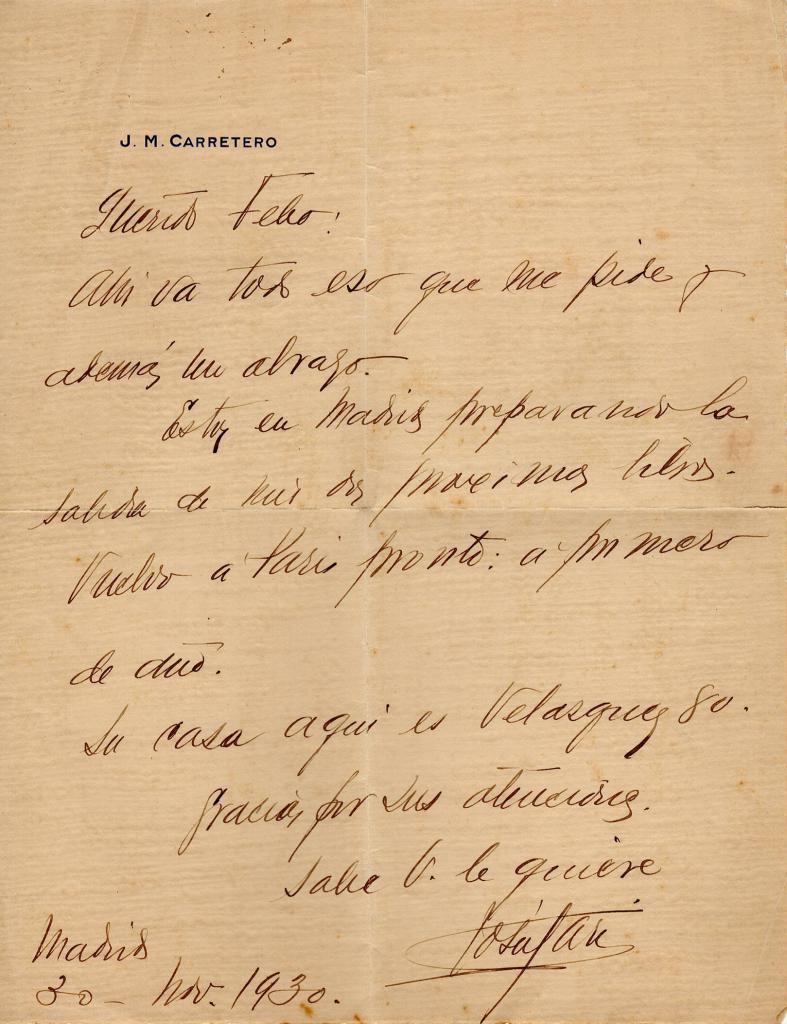 J. M. CARRETERO
Querido Febo:
Ahi va todo eso que me pide y
además un abrazo.
Estoy en Madrid preparando la
salida de mis dos proximos libros.
Vuelvo á Paris pronto: á primero
de año.
Su casa aqui es Velazquez 80.
Gracias por sus atenciones.
Sabe V. le quiere
Madrid
30 - Nov. 1930.